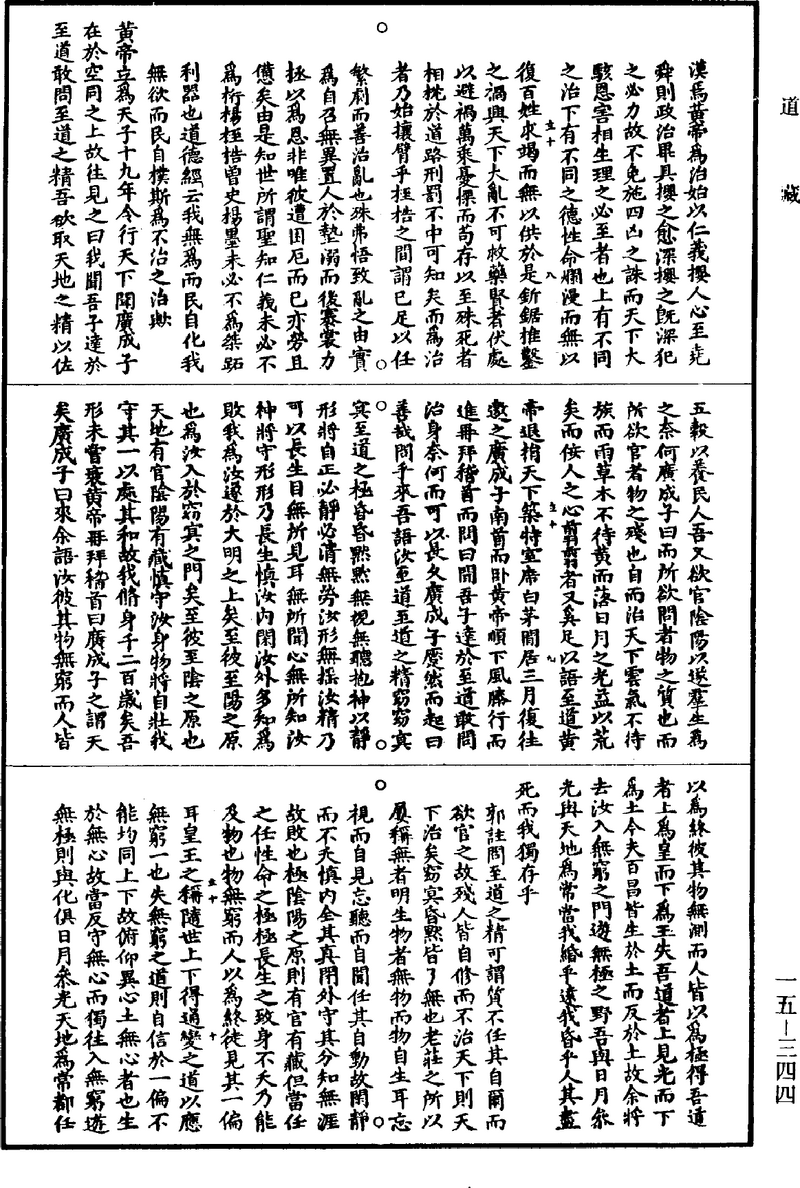 道藏
漢焉黃帝爲治始以仁義攖人心至堯
舜則政治畢具攖之愈深攖之旣深犯
之必力故不免施四凶之誅而天下大
駭恩害相生理之必至者也上有不同
之治下有不同之德性命爛漫而無以
復百姓求竭而無以供於是釿鋸椎鑿
之禍興天下大亂不可救藥賢者伏處
以避禍萬乘憂慄而苟存以至殊死者
相枕於道路刑罰不中可知矣而爲治
者乃始攘臂乎桎梏之間謂已足以任
繁劇而善治亂也殊弗悟致亂之由實
爲自召無異置人於墊溺而後褰裳力
拯以爲恩非唯彼遭困厄而已亦勞且
憊矣由是知世所謂聖知仁義未必不
爲桁楊桎梏曾史楊墨未必不爲桀跖
利器也道德經云我無爲而民自化我
無欲而民自樸斯爲不治之治歟
黃帝立爲天子十九年令行天下聞廣成子
在於空同之上故往見之曰我聞吾子達於
至道敢問至道之精吾欲取天地之精以佐
五穀以養民人吾又欲官陰陽以遂羣生爲
之奈何廣成子曰而所欲問者物之質也而
所欲官者物之殘也自而治天下雲氣不待
族而雨草木不待黃而落日月之光益以荒
矣而佞人之心翦翦者又奚足以語至道黃
帝退捐天下築特室席白茅閒居三月復往
邀之廣成子南首而卧黃帝順下風膝行而
進再拜稽首而問曰聞吾子達於至道敢問
治身奈何而可以長久廣成子蹷然而起曰
善哉問乎來吾語汝至道至道之精窈窈冥
冥至道之極昏昏默默無視無聽抱神以靜
形將自正必靜必清無勞汝形無搖汝精乃
可以長生目無所見耳無所聞心無所知汝
神將守形形乃長生慎汝內閑汝外多知爲
敗我爲汝遂於大明之上矣至彼至陽之原
也爲汝入於窈冥之門矣至彼至陰之原也
天地有官陰陽有藏慎守汝身物將自壯我
守其一以處其和故我脩身千二百歲矣吾
形未嘗衰黃帝再拜稽首曰廣成子之謂天
矣廣成子曰來余語汝彼其物無窮而人皆
以爲終彼其物無測而人皆以爲極得吾道
者上爲皇而下爲王失吾道者上見光而下
爲土今夫百昌皆生於土而反於土故余將
去汝入無窮之門遊無極之野吾與日月參
光與天地爲常當我緡乎遠我昏乎人其盡
死而我獨存乎
郭註問至道之精可謂質不任其自爾而
欲官之故殘人皆自修而不治天下則天
下治矣窈冥昏默皆了無也老莊之所以
屢稱無者明生物者無物而物自生耳忘
視而自見忘聽而自聞任其自動故閑靜
而不夭慎內全其真閉外守其分知無涯
故敗也極陰陽之原則有官有藏但當任
之任性命之極極長生之致身不夭乃能
及物也物無窮而人以爲終徒見其一偏
耳皇王之稱隨世上下得通變之道以應
無窮一也失無窮之道則自信於一偏不
能均同上下故俯仰異心土無心者也生
於無心故當反守無心而獨往入無窮遊
無極則與化俱日月參光天地爲常都任
一五—三四四